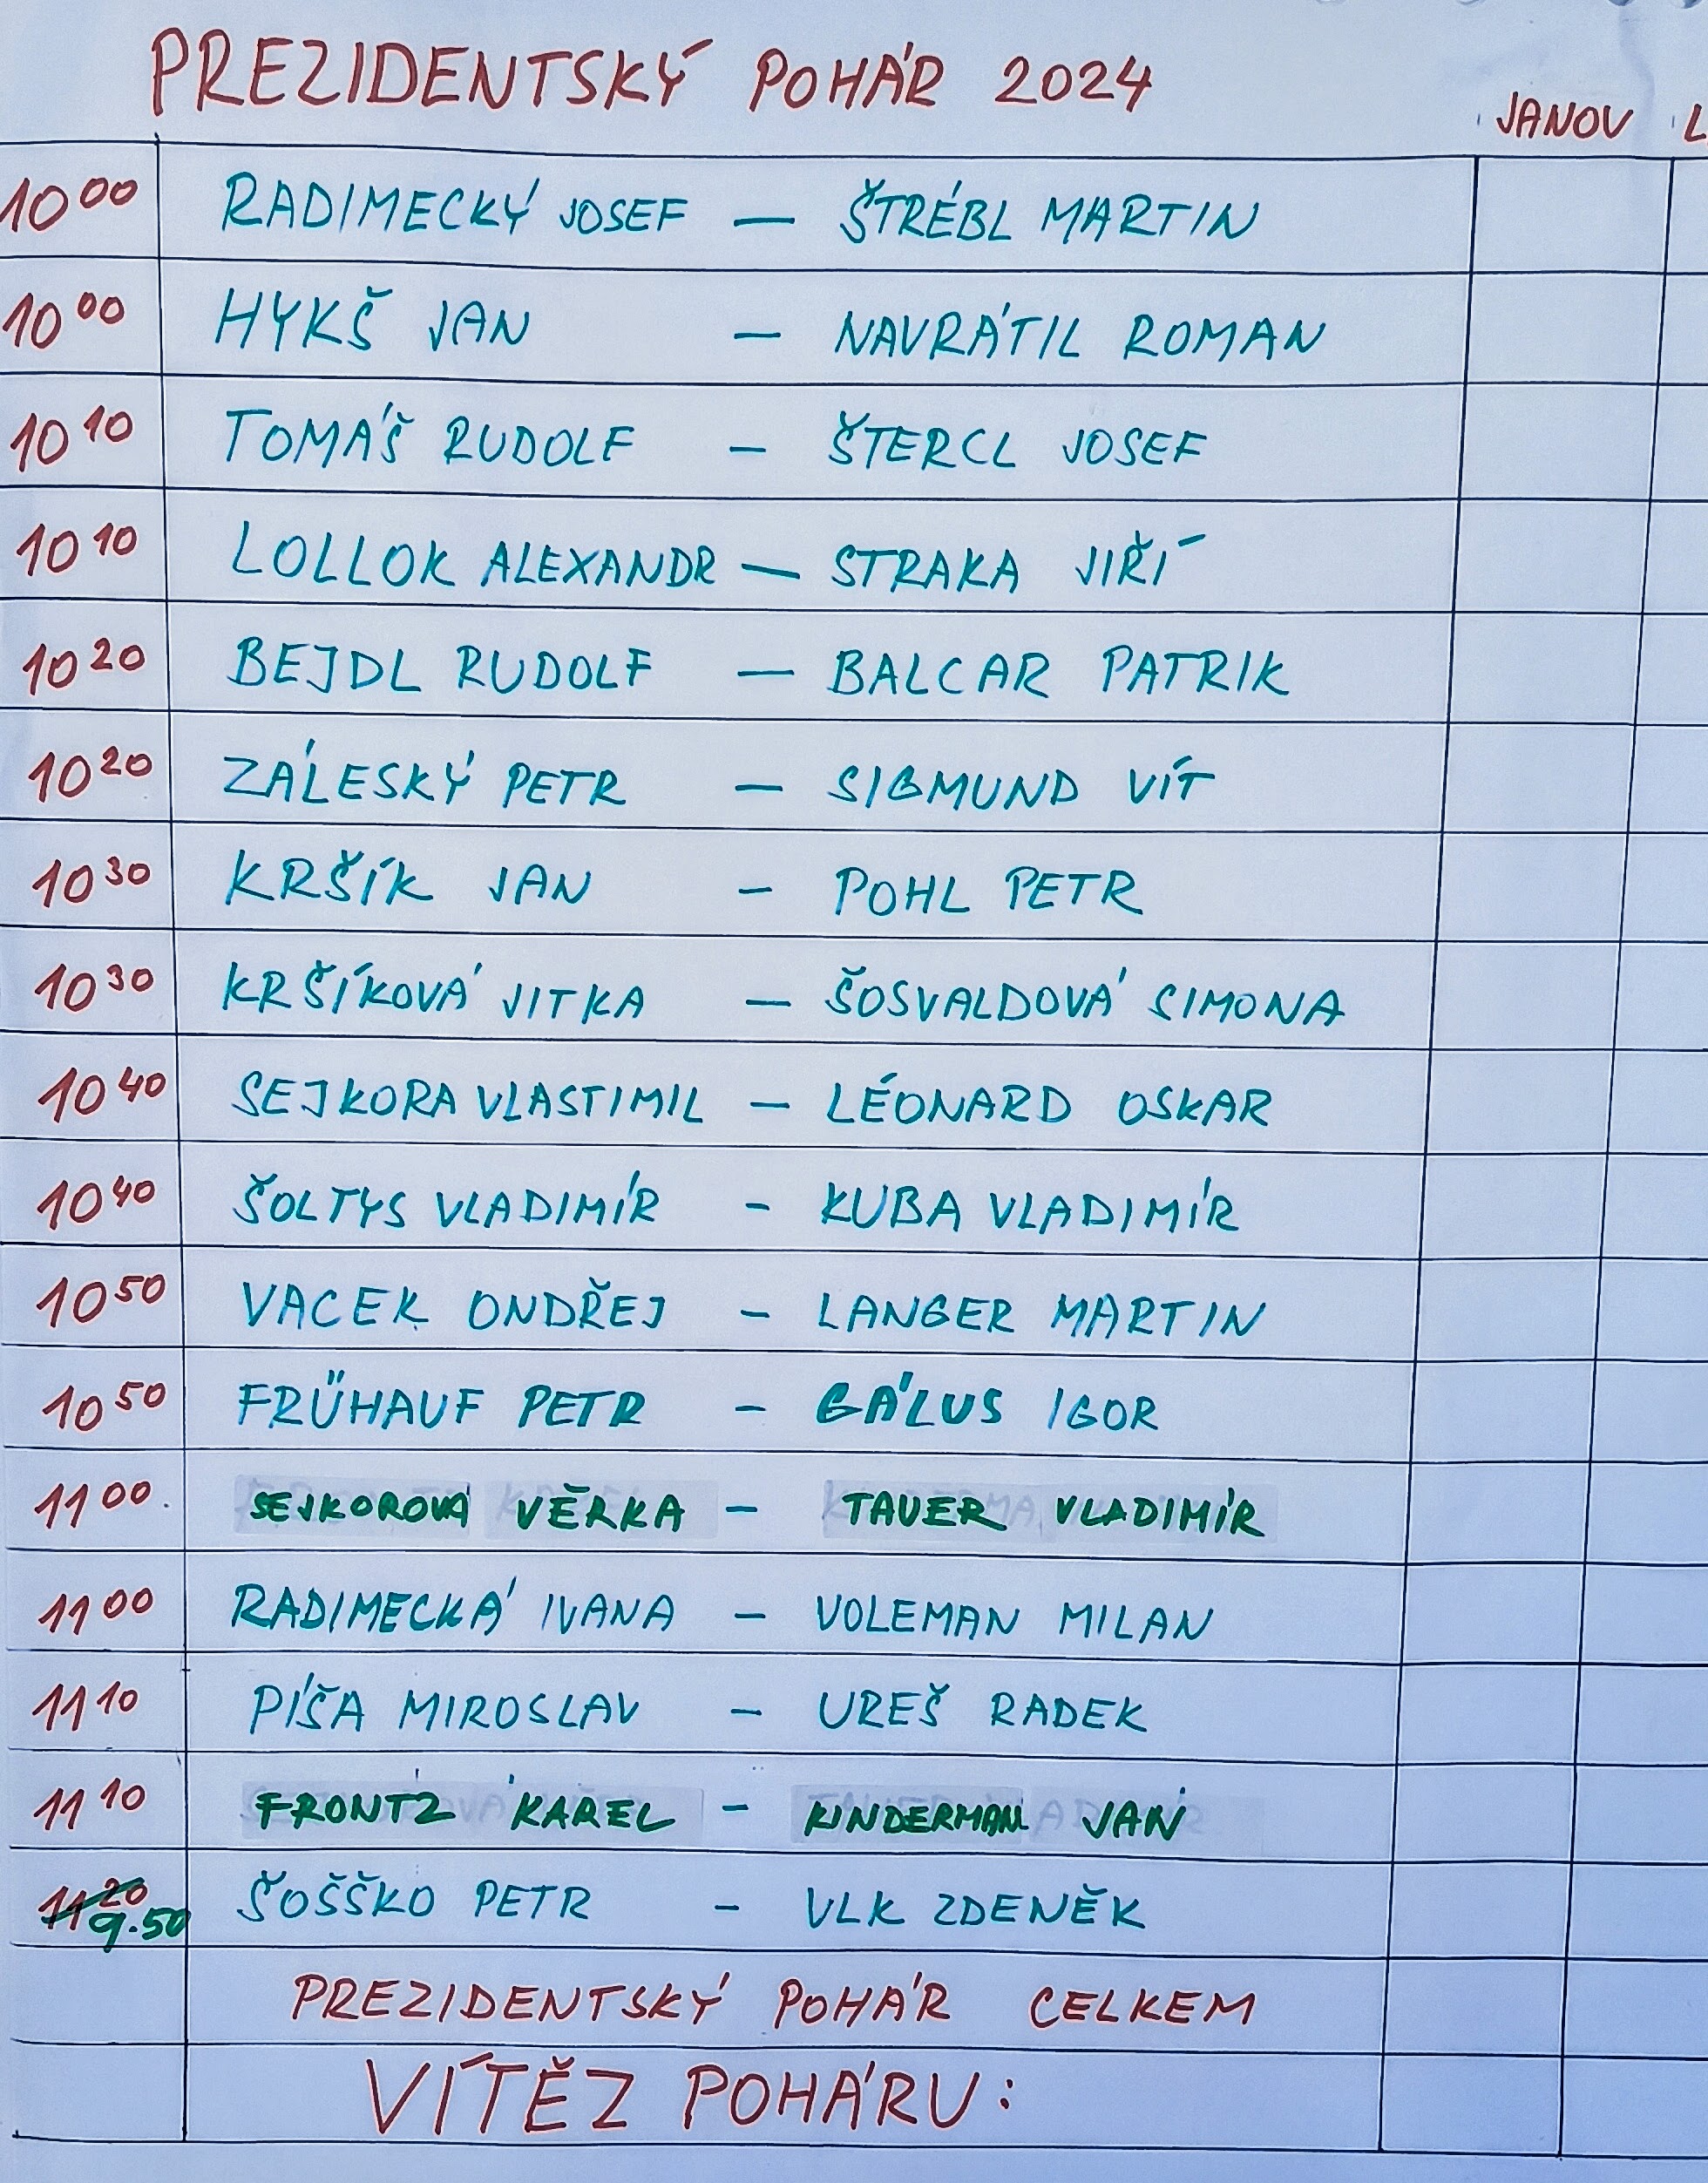 PREZIDENTSKÝ POHÁR 2024
JANOV
10 00 RADIMECKÝ JOSEF — ŠTRÉBL MARTIN
10 00 HYKŠ JAN — NAVRÁTIL ROMAN
10 10 TOMÁŠ RUDOLF — ŠTERCL JOSEF
10 10 LOLLOK ALEXANDR — STRAKA JIŘÍ
10 20 BEJDL RUDOLF — BALCAR PATRIK
10 20 ZÁLESKÝ PETR — SIGMUND VÍT
10 30 KRŠÍK JAN - POHL PETR
10 30 KRŠÍKOVÁ JITKA — ŠOSVALDOVÁ SIMONA
10 40 SEJKORA VLASTIMIL — LÉONARD OSKAR
10 40 ŠOLTYS VLADIMÍR - KUBA VLADIMÍR
10 50 VACEK ONDŘEJ - LANGER MARTIN
10 50 FRÜHAUF PETR - GÁLUS IGOR
11 00 SEJKOROVÁ VĚRKA - TAUER VLADIMÍR
11 00 RADIMECKÁ IVANA - VOLEMAN MILAN
11 10 PÍŠA MIROSLAV - UREŠ RADEK
11 10 FRONTZ KAREL - KINDERMAN JAN
11 20 9.50 ŠOŠŠKO PETR - VLK ZDENĚK
PREZIDENTSKÝ POHÁR CELKEM
VÍTĚZ POHÁRU: